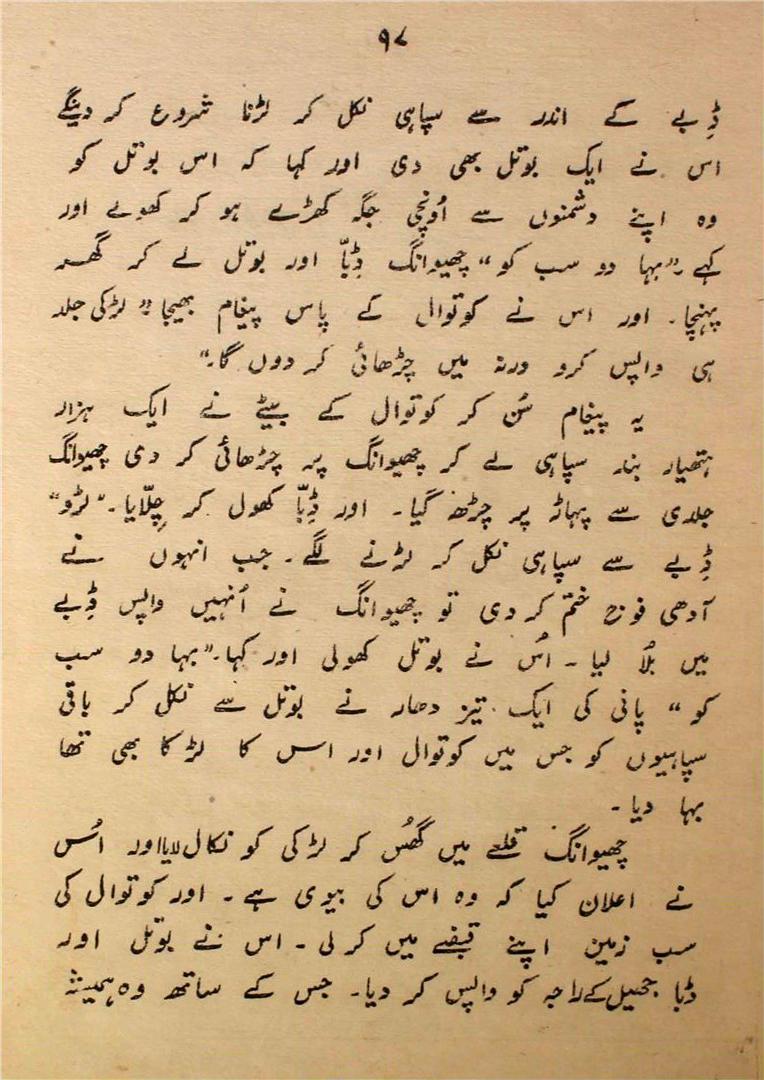 ۹۷
ڈبے کے اندر سے سپاہی نکل کر لڑنا شروع کر دینگے
اس نے ایک بوتل بھی دی اور کہا کہ اس بوتل کو
وہ اپنے دشمنوں سے اُونچی جگہ کھڑے ہو کر کھولے اور
کہے ”بہا دو سب کو“ چھیوانگ ڈِبّا اور بوتل لے کر گھر
پہنچا۔ اور اس نے کوتوال کے پاس پیغام بھیجا ”لڑکی جلد
ہی واپس کرو ورنہ میں چڑھائی کر دوں گا۔“
یہ پیغام سُن کر کوتوال کے بیٹے نے ایک ہزار
ہتھیار بند سپاہی لے کر چھیوانگ پر چڑھائی کر دی چھیوانگ
جلدی سے پہاڑ پر چڑھ گیا۔ اور ڈِبّا کھول کر چِلّایا۔ ”لڑو“
ڈِبے سے سپاہی نکل کر لڑنے لگے۔ جب انہوں نے
آدھی فوج ختم کر دی تو چھیوانگ نے اُنہیں واپس ڈِبے
میں بُلا لیا۔ اُس نے بوتل کھولی اور کہا۔ ”بہا دو سب
کو“ پانی کی ایک تیز دھار نے بوتل سے نکل کر باقی
سپاہیوں کو جس میں کوتوال اور اس کا لڑکا بھی تھا
بہا دیا۔
چھیوانگ قلعے میں گھُس کر لڑکی کو نکال لایا اور اُس
نے اعلان کیا کہ وہ اس کی بیوی ہے۔ اور کوتوال کی
سب زمین اپنے قبضے میں کر لی۔ اس نے بوتل اور
ڈبا جھیل کے راجہ کو واپس کر دیا۔ جس کے ساتھ وہ ہمیشہ